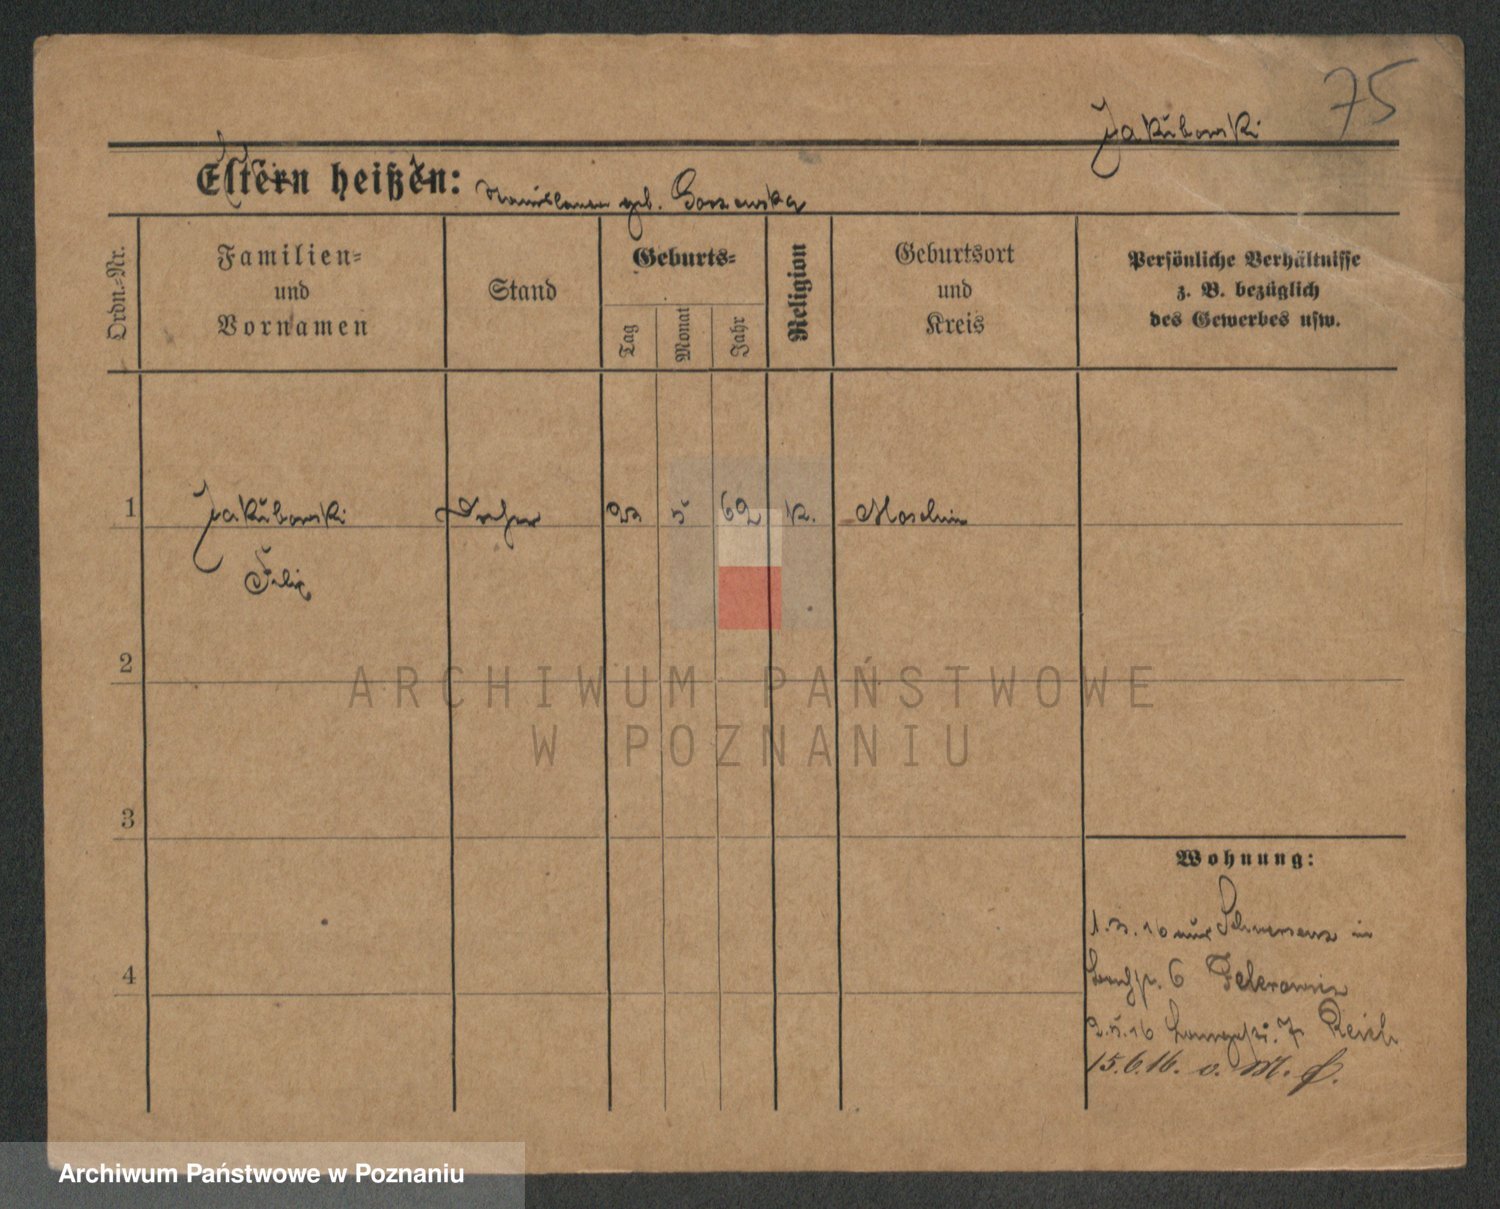 75
Jakubowski
Eltern heißen:
geb.
Ordn.-Nr.
Familien-
und
Vornamen
Stand
Geburts-
Tag
Monat
Jahr
Religion
Geburtsort
und
Kreis
Persönliche Verhältnisse
z. B. bezüglich
des Gewerbes usw.
1 Jakubowski 5 62 k. Moschin
Felix
2
3
4
Wohnung:
16 aus Schwersenz in
6
16 7 Reich
15.6.16. v. M.
ARCHIWUM PAŃSTWOWE
W POZNANIU
Archiwum Państwowe w Poznaniu